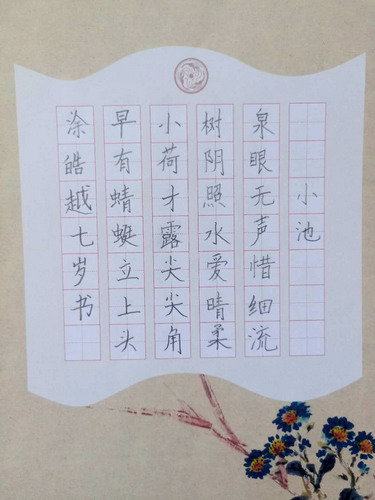 小池
泉眼无声惜细流
树阴照水爱晴柔
小荷才露尖尖角
早有蜻蜓立上头
涂皓越七岁书